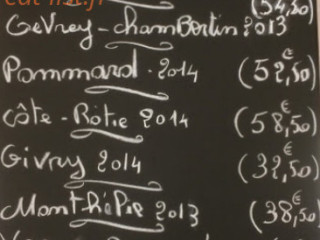 (54,50)
Gevrey-chambertin 2013
Pommard - 2014 (52,50€)
Côte-Rôtie 2014 (58,50€)
Givry 2014 (32,50€)
Monthélie 2013 (38,50€)